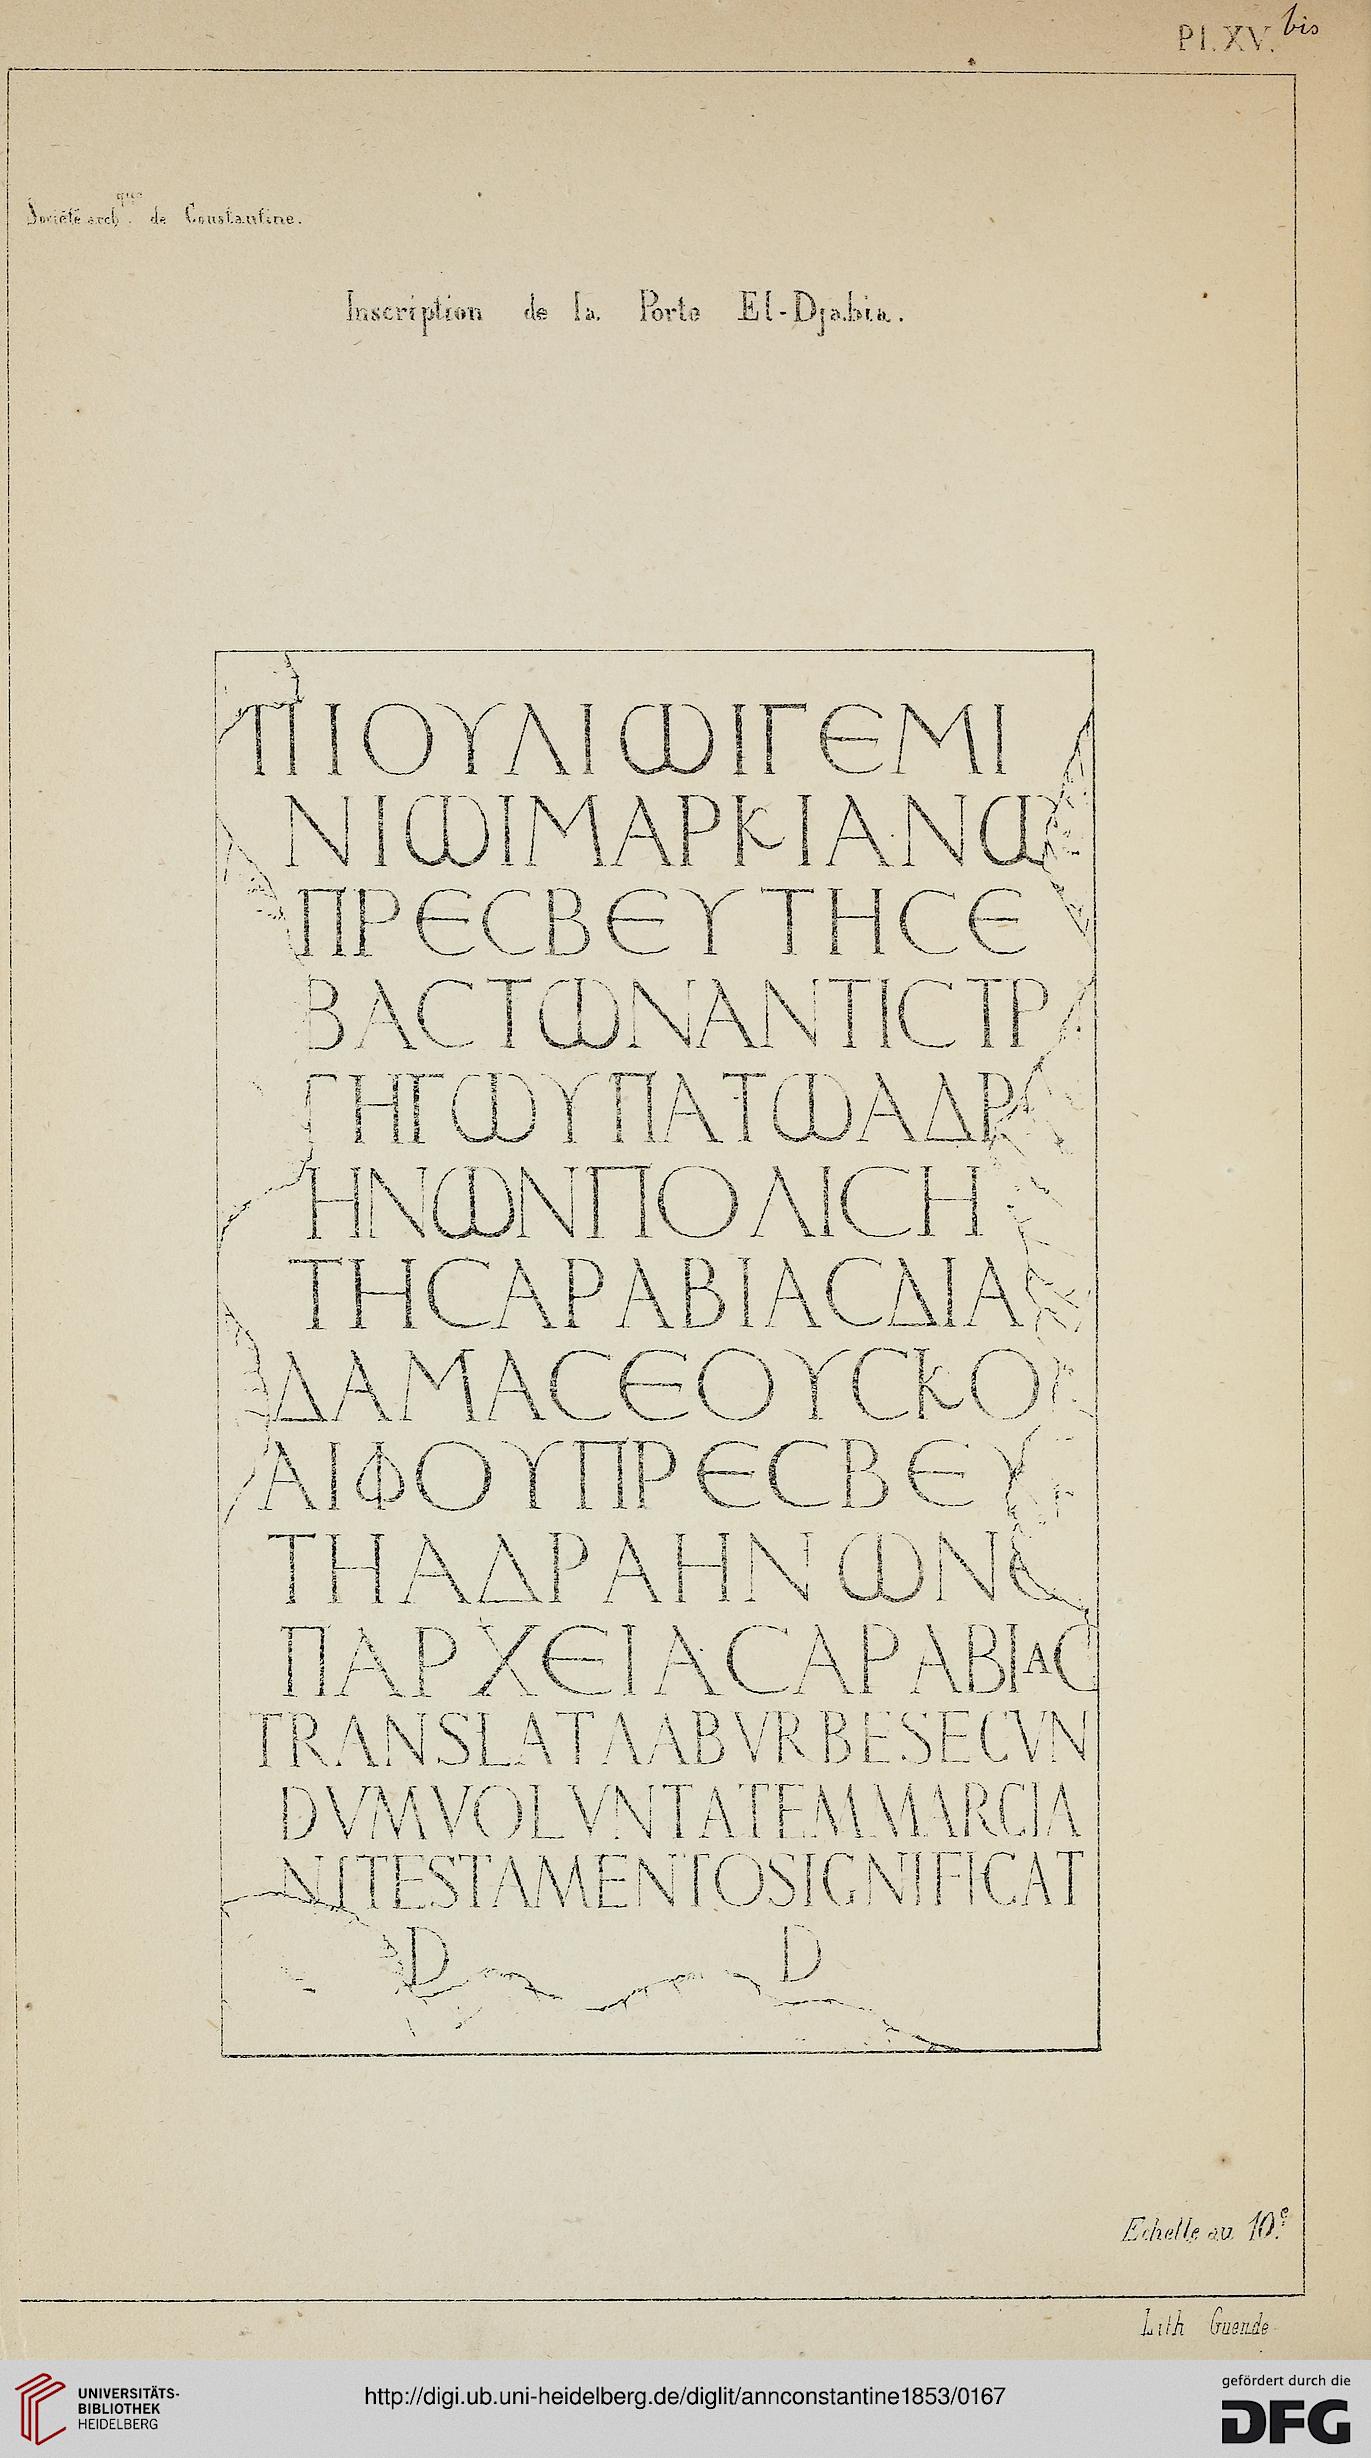 Pl. XV. bis
Société arch.que de Constantine.
Inscription de la Porte El-Djabia.
ΠΙΟΥΛΙѠΙΓΕΜΙ
ΝΙѠΙΜΑΡΚΙΑΝѠ
ΠΡΕϹΒΕΥΤΗϹΕ
ΒΑϹΤѠΝΑΝΤΙϹΤΡ
ΓΗΓѠΥΠΑΤѠΑΔΡ
ΗΝѠΝΠΟΛΙϹΗ
ΤΗϹΑΡΑΒΙΑϹΔΙΑ
ΔΑΜΑϹΕΟΥϹΚΟ
ΑΙΦΟΥΠΡΕϹΒΕΥ
ΤΗΑΔΡΑΗΝѠΝΕ
ΠΑΡΧΕΙΑϹΑΡΑΒΙΑϹ
TRANSLATAABVRBESECVN
DVMVOLVNTATEMMARCIA
NITESTAMENTOSIGNIFICAT
D D
Echelle au 10.e
Lith Guende
UNIVERSITÄTS-
BIBLIOTHEK
HEIDELBERG
http://digi.ub.uni-heidelberg.de/diglit/annconstantine1853/0167
gefördert durch die
DFG